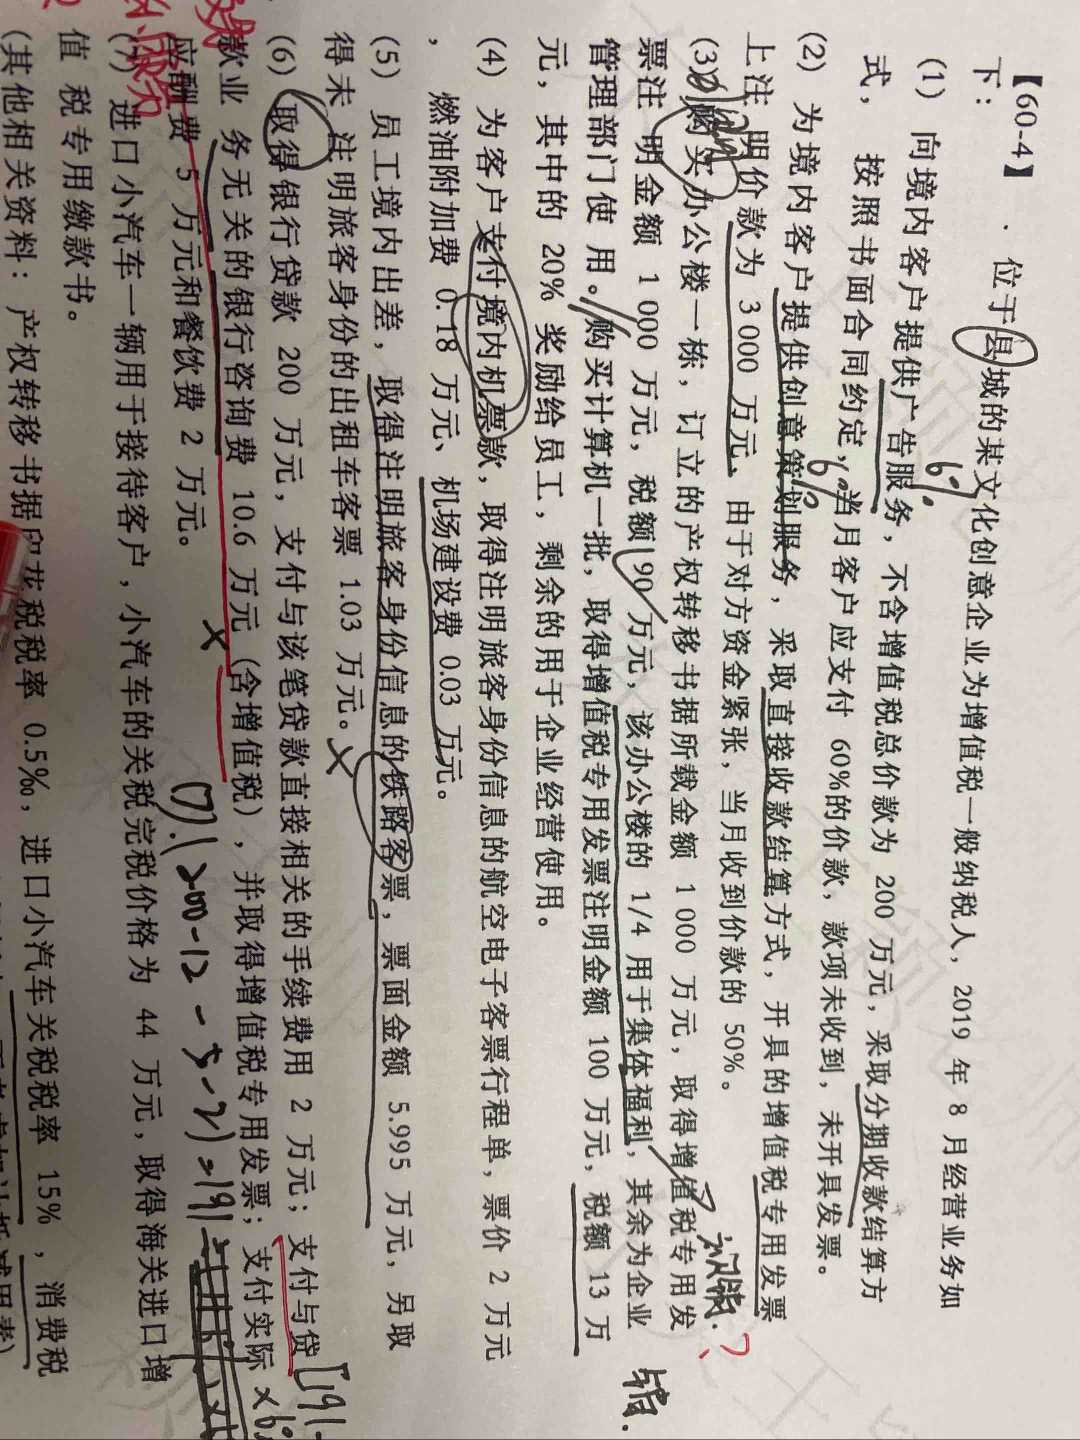 【60-4】 . 位于县城的某文化创意企业为增值税一般纳税人，2019 年 8 月经营业务如
下：
（1） 向境内客户提供广告服务，不含增值税总价款为 200 万元，采取分期收款结算方
6%
式， 按照书面合同约定，当月客户应支付 60%的价款，款项未收到，未开具发票。
（2） 为境内客户提供创意策划服务，采取直接收款结算方式，开具的增值税专用发票
6%
上注 明价款为 3 000 万元。由于对方资金紧张，当月收到价款的 50%。
（3）购买办公楼一栋，订立的产权转移书据所载金额 1 000 万元，取得增值税专用发
票注 明金额 1 000 万元，税额 90 万元，该办公楼的 1/4 用于集体福利，其余为企业
管理部门使 用。购买计算机一批，取得增值税专用发票注明金额 100 万元，税额 13 万
元，其中的 20% 奖励给员工，剩余的用于企业经营使用。
（4） 为客户支付境内机票款，取得注明旅客身份信息的航空电子客票行程单，票价 2 万元
， 燃油附加费 0.18 万元、机场建设费 0.03 万元。
（5） 员工境内出差，取得注明旅客身份信息的铁路客票，票面金额 5.995 万元，另取
得未 注明旅客身份的出租车客票 1.03 万元。
（6） 取得银行贷款 200 万元，支付与该笔贷款直接相关的手续费用 2 万元；支付与贷
款业 务无关的银行咨询费 10.6 万元（含增值税），并取得增值税专用发票；支付实际
应酬费 5 万元和餐饮费 2 万元。
200-12-5-2)=191
（7） 进口小汽车一辆用于接待客户，小汽车的关税完税价格为 44 万元，取得海关进口增
值 税专用缴款书。
（其他相关资料：产权转移书据印花税税率 0.5‰，进口小汽车关税税率 15%，消费税